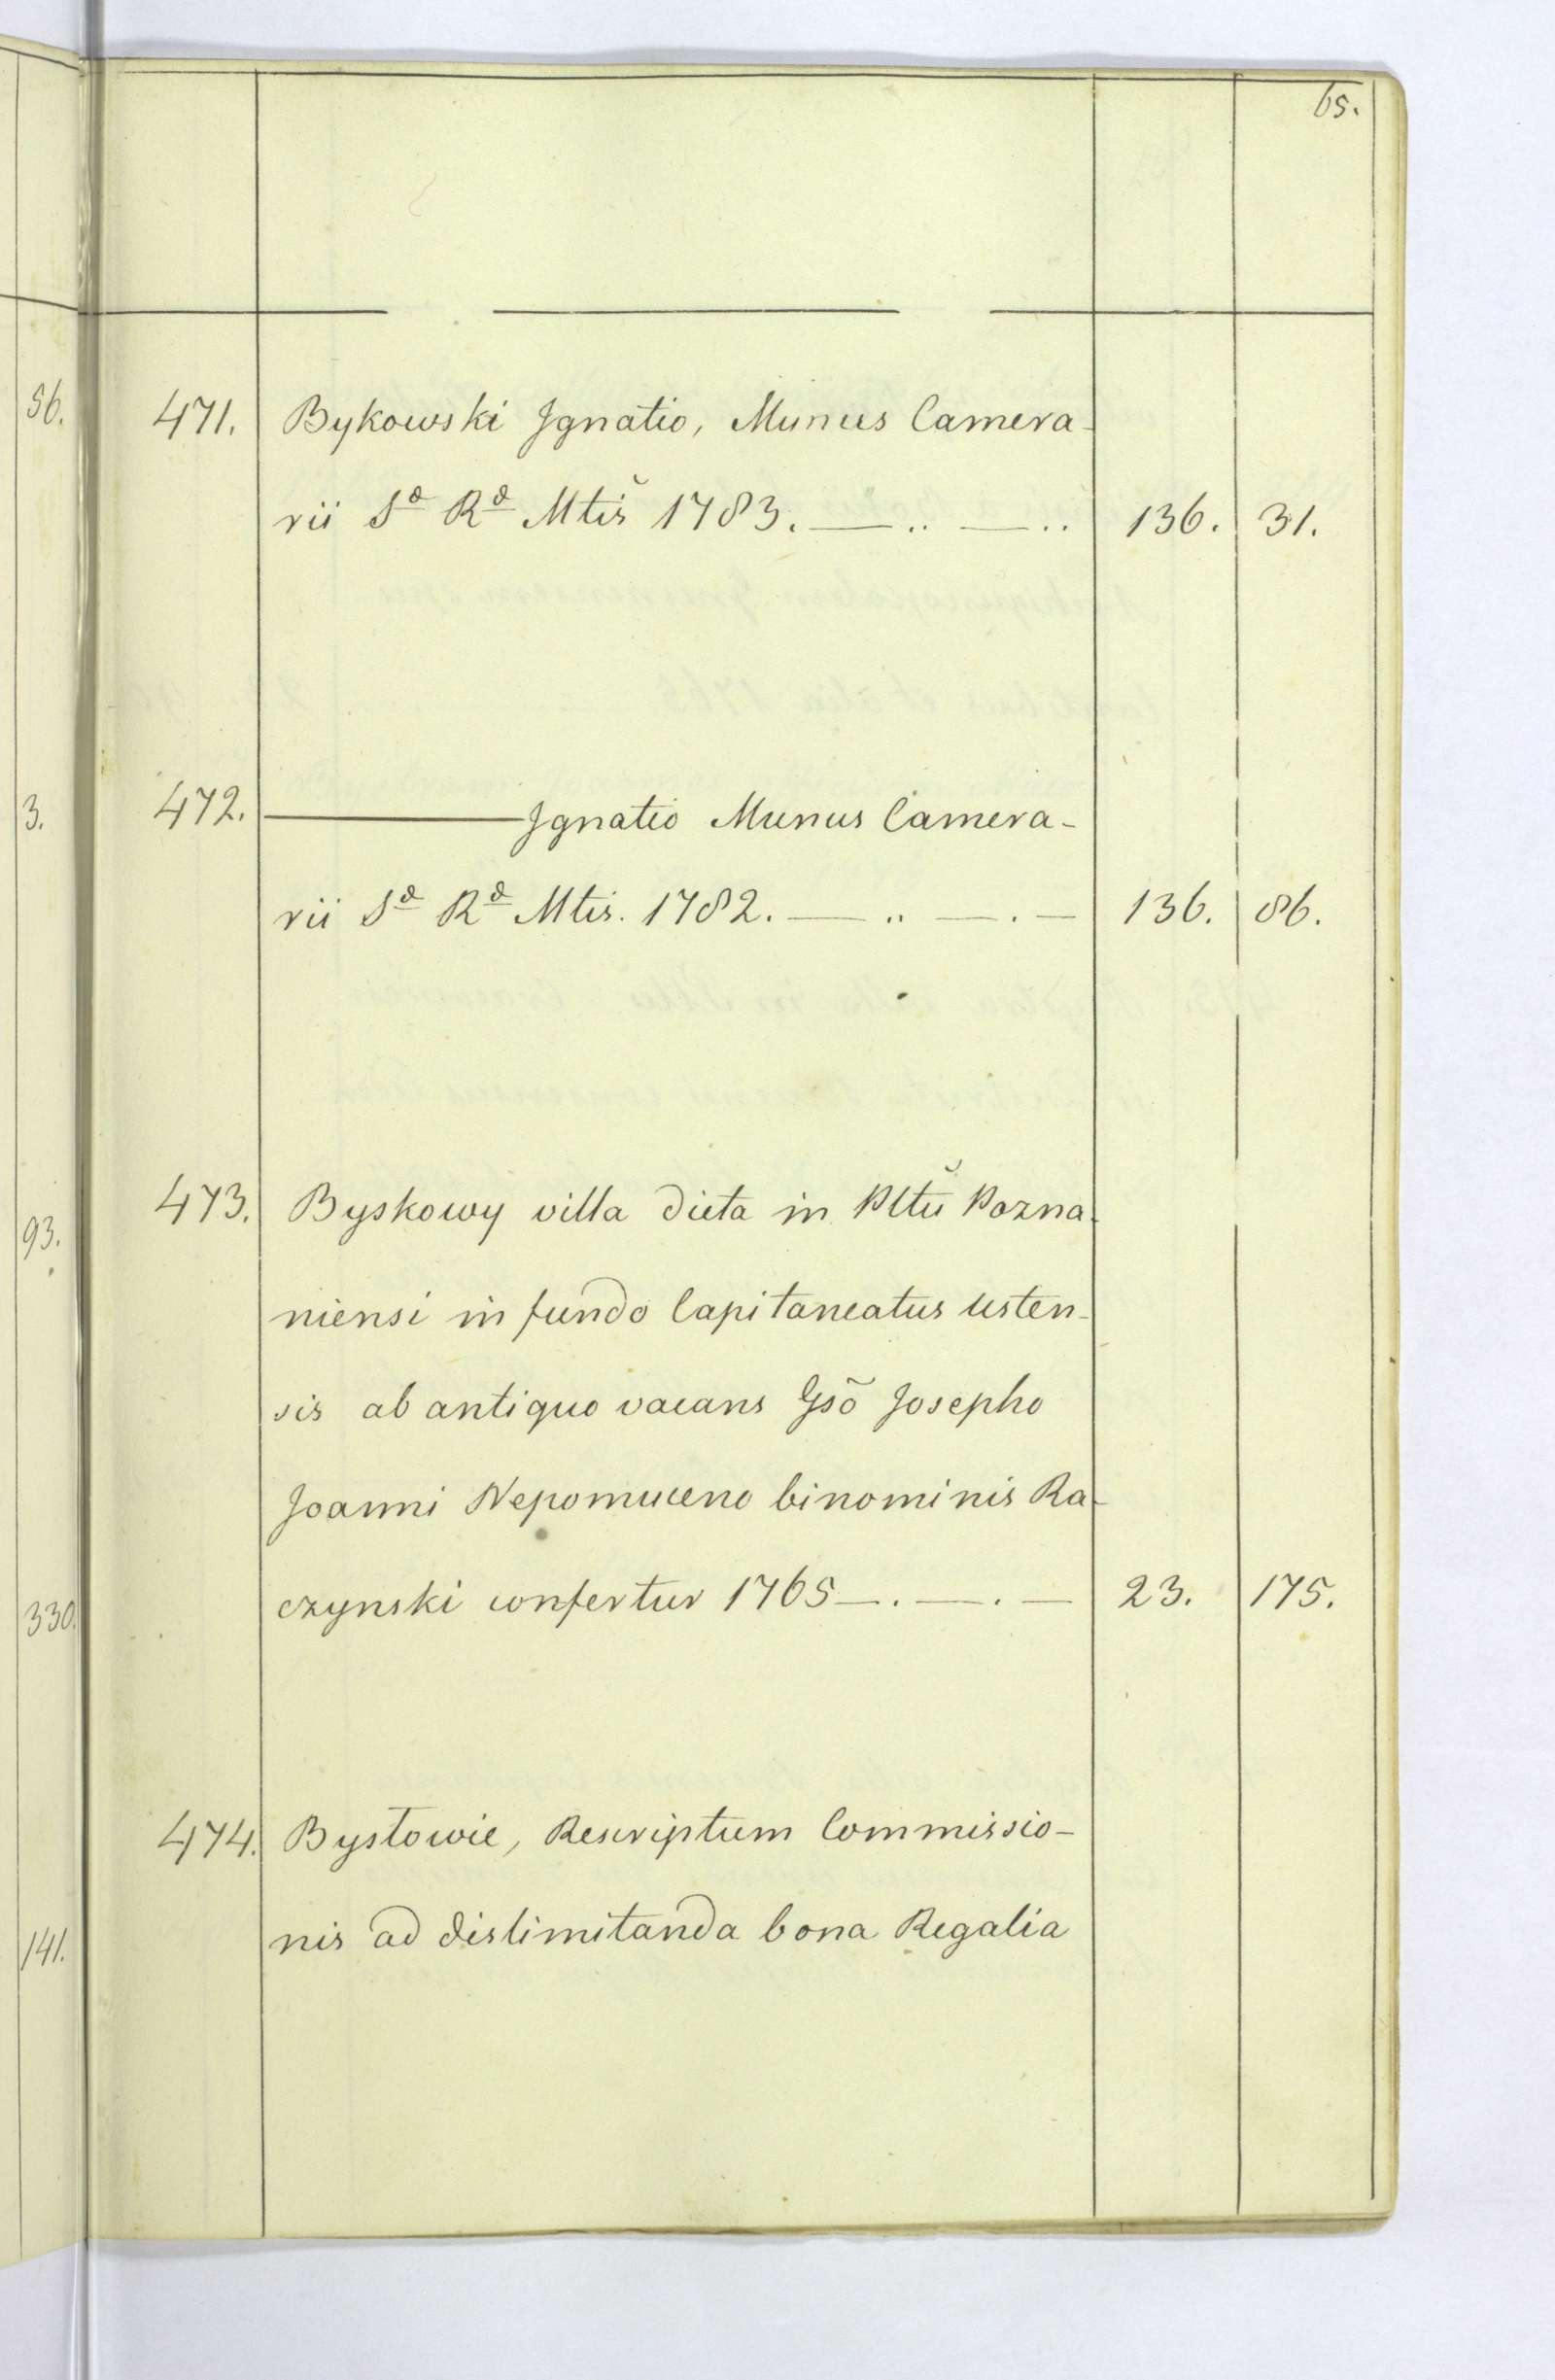 65.
471. Bykowski Jgnatio, Munus Camera-
rii Sæ Ræ Mtis̆ 1783. — .. — .. 136. 31.
472. ——— Jgnatio Munus Camera-
rii Sæ Ræ Mtis. 1782. — .. — . — 136. 86.
473. Byskowy villa dicta in Pltŭ Pozna-
niensi in fundo Capitaneatus Usten-
sis ab antiquo vacans Gsõ Josepho
Joanni Nepomuceno binominis Ra-
czynski confertur 1765 — . — . — 23. 175.
474. Bystowie, Rescriptum Commissio-
nis ad dislimitanda bona Regalia
56.
3.
93.
330.
141.